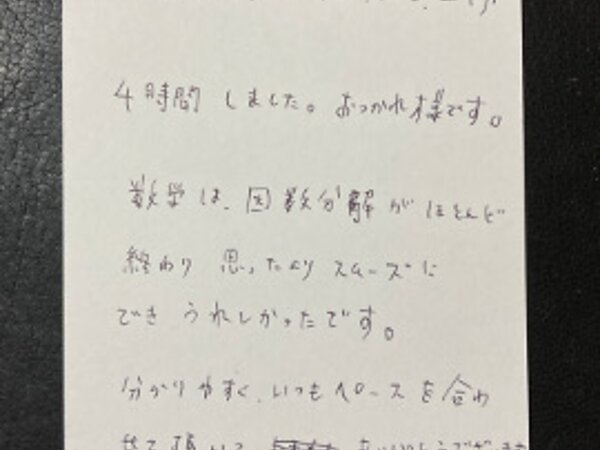 4時間 しました。おつかれ様です。
数学は、因数分解がほとんど
終わり 思ったよりスムーズに
でき うれしかったです。
分かりやすく、いつもペースを合わ
せて頂いて